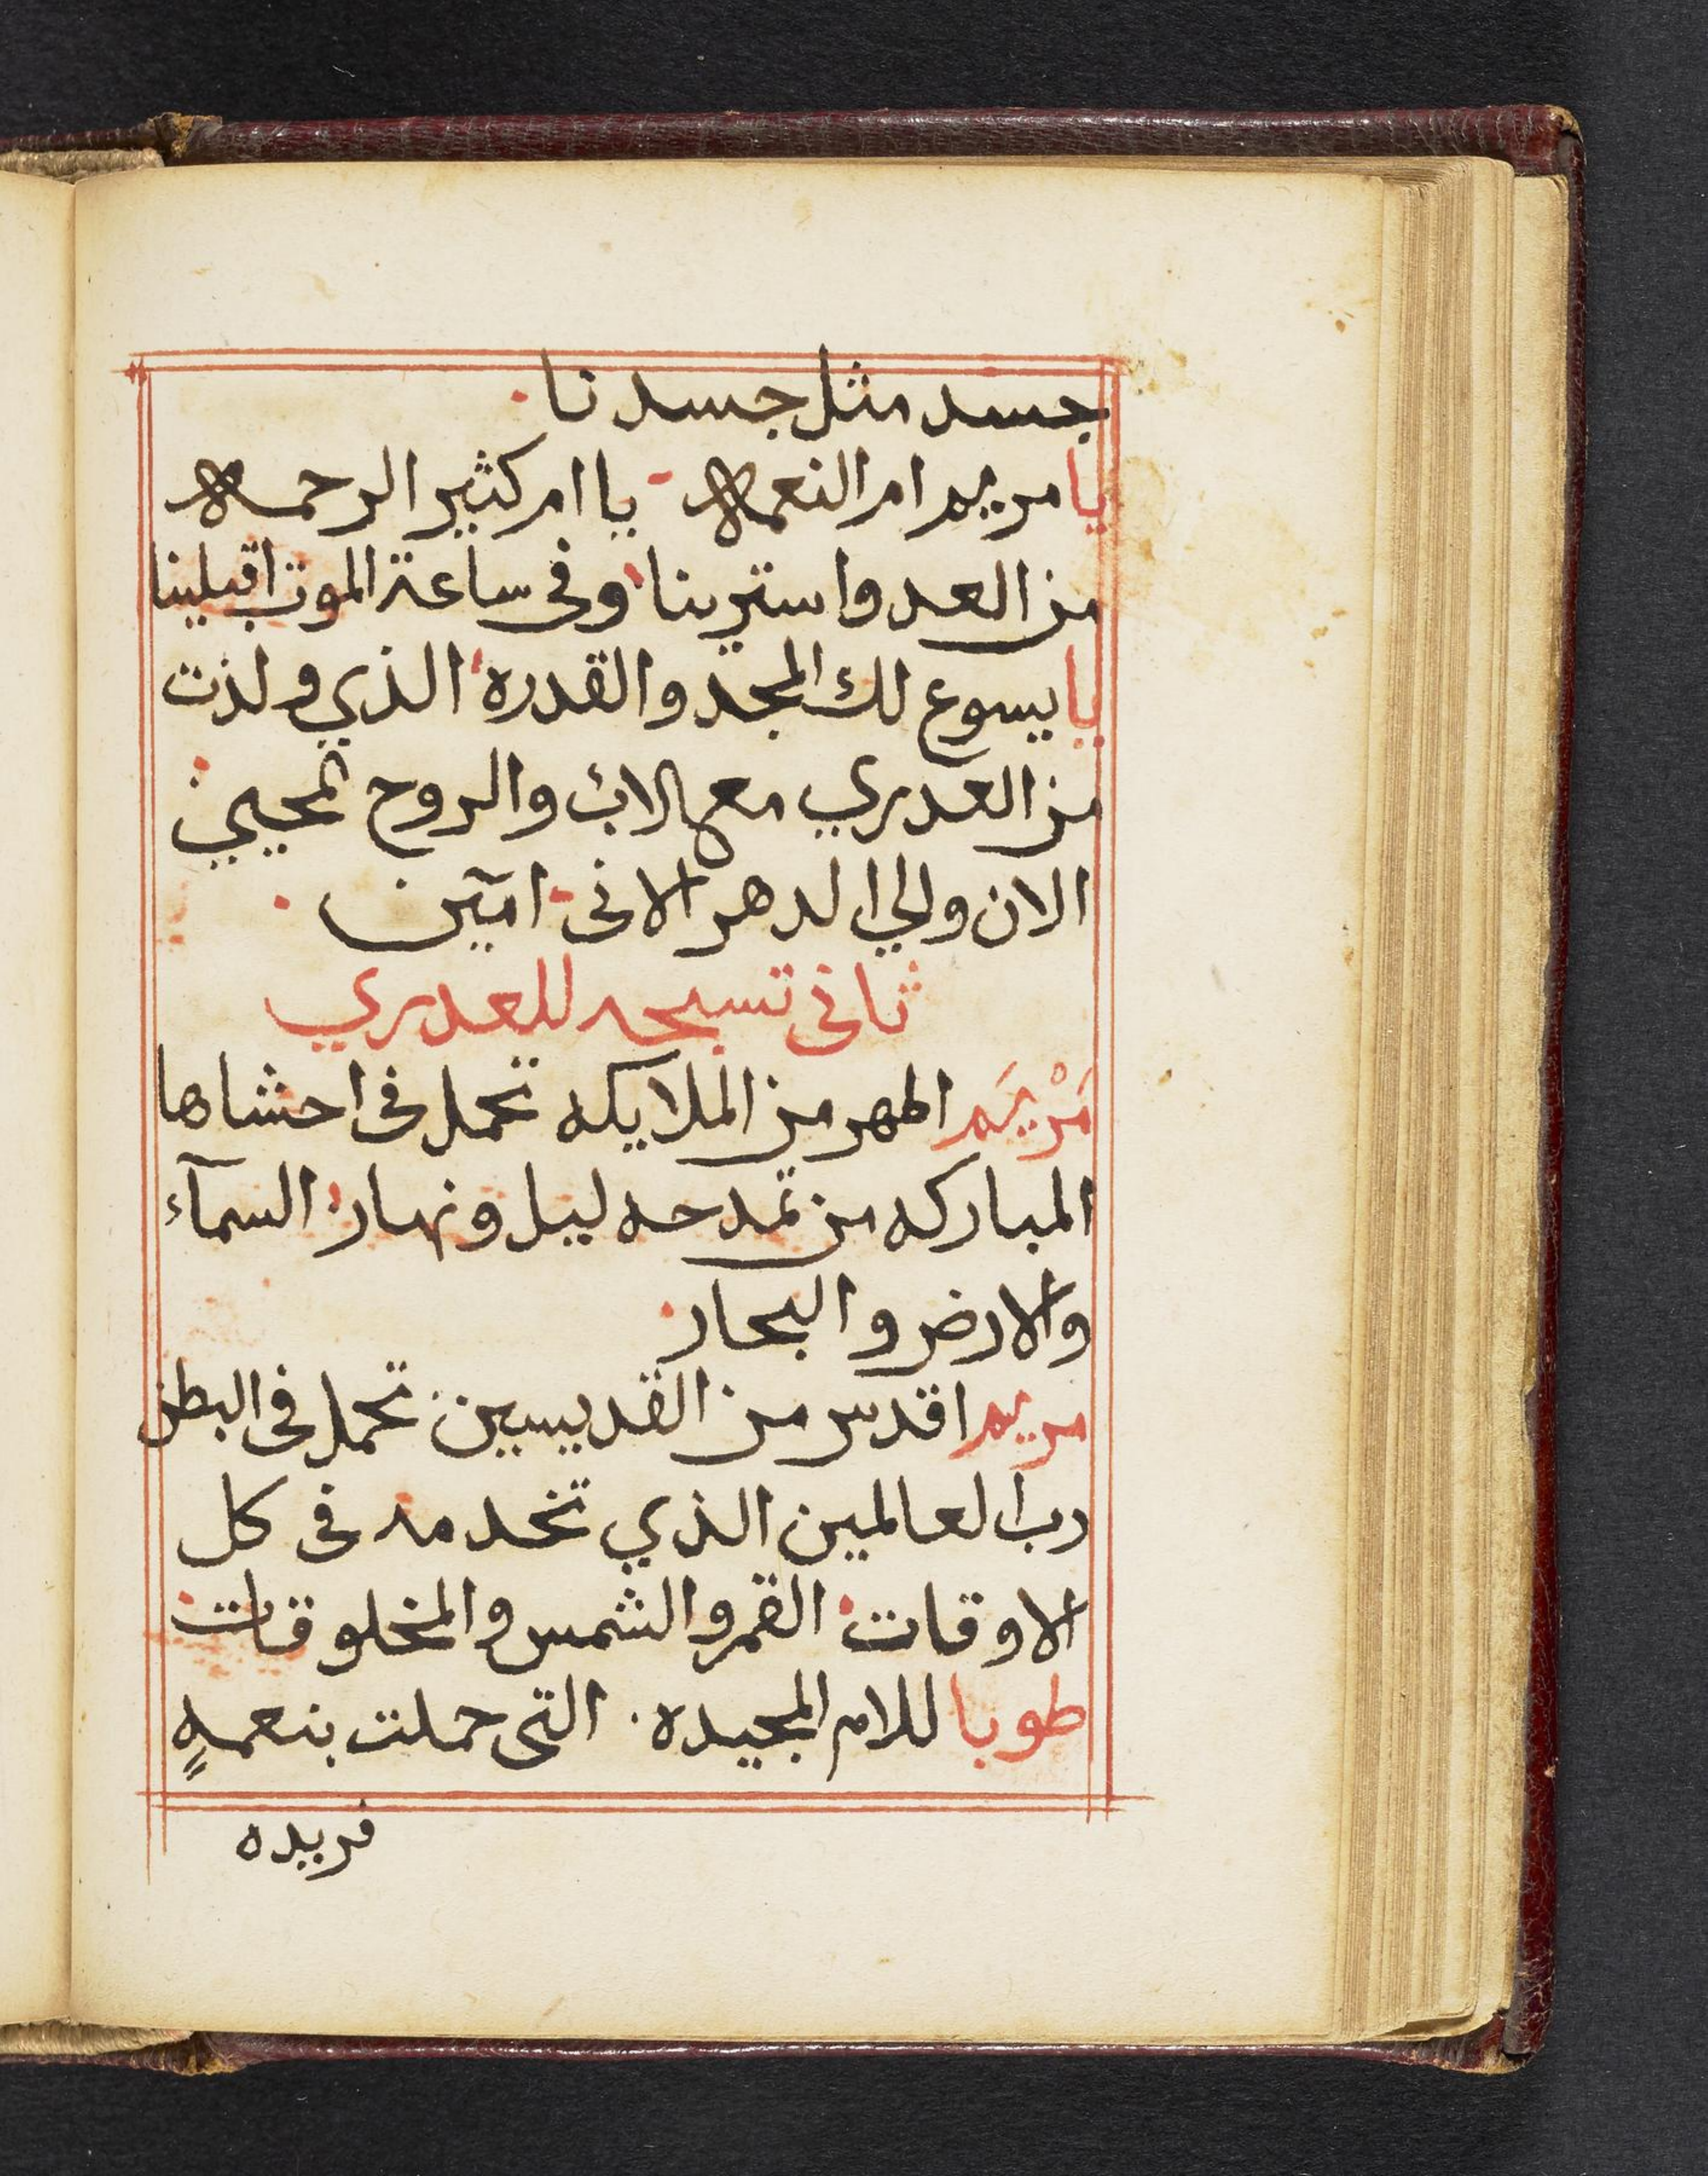 جسد مثل جسدنا.
يا مريم ام النعمه يا ام كثير الرحمه
من العدو استرينا وفى ساعة الموت اقبلينا
يا يسوع لك المجد والقدره الذي ولذت
من العدري مع الاب والروح المحيي
الان والي الدهر الاتى امين
ثانى تسبحه للعدري
مَرْيَم اطهر من الملايكه تحمل فى احشاها
المباركه من تمدحه ليل ونهار السمآء
والارض والبحار
مريم اقدس من القديسين تحمل فى البطن
رب العالمين الذي تخدمه فى كل
الاوقات القمر والشمس والمخلوقات
طوبا للام المجيده. التى حملت بنعمهٍ
فريده